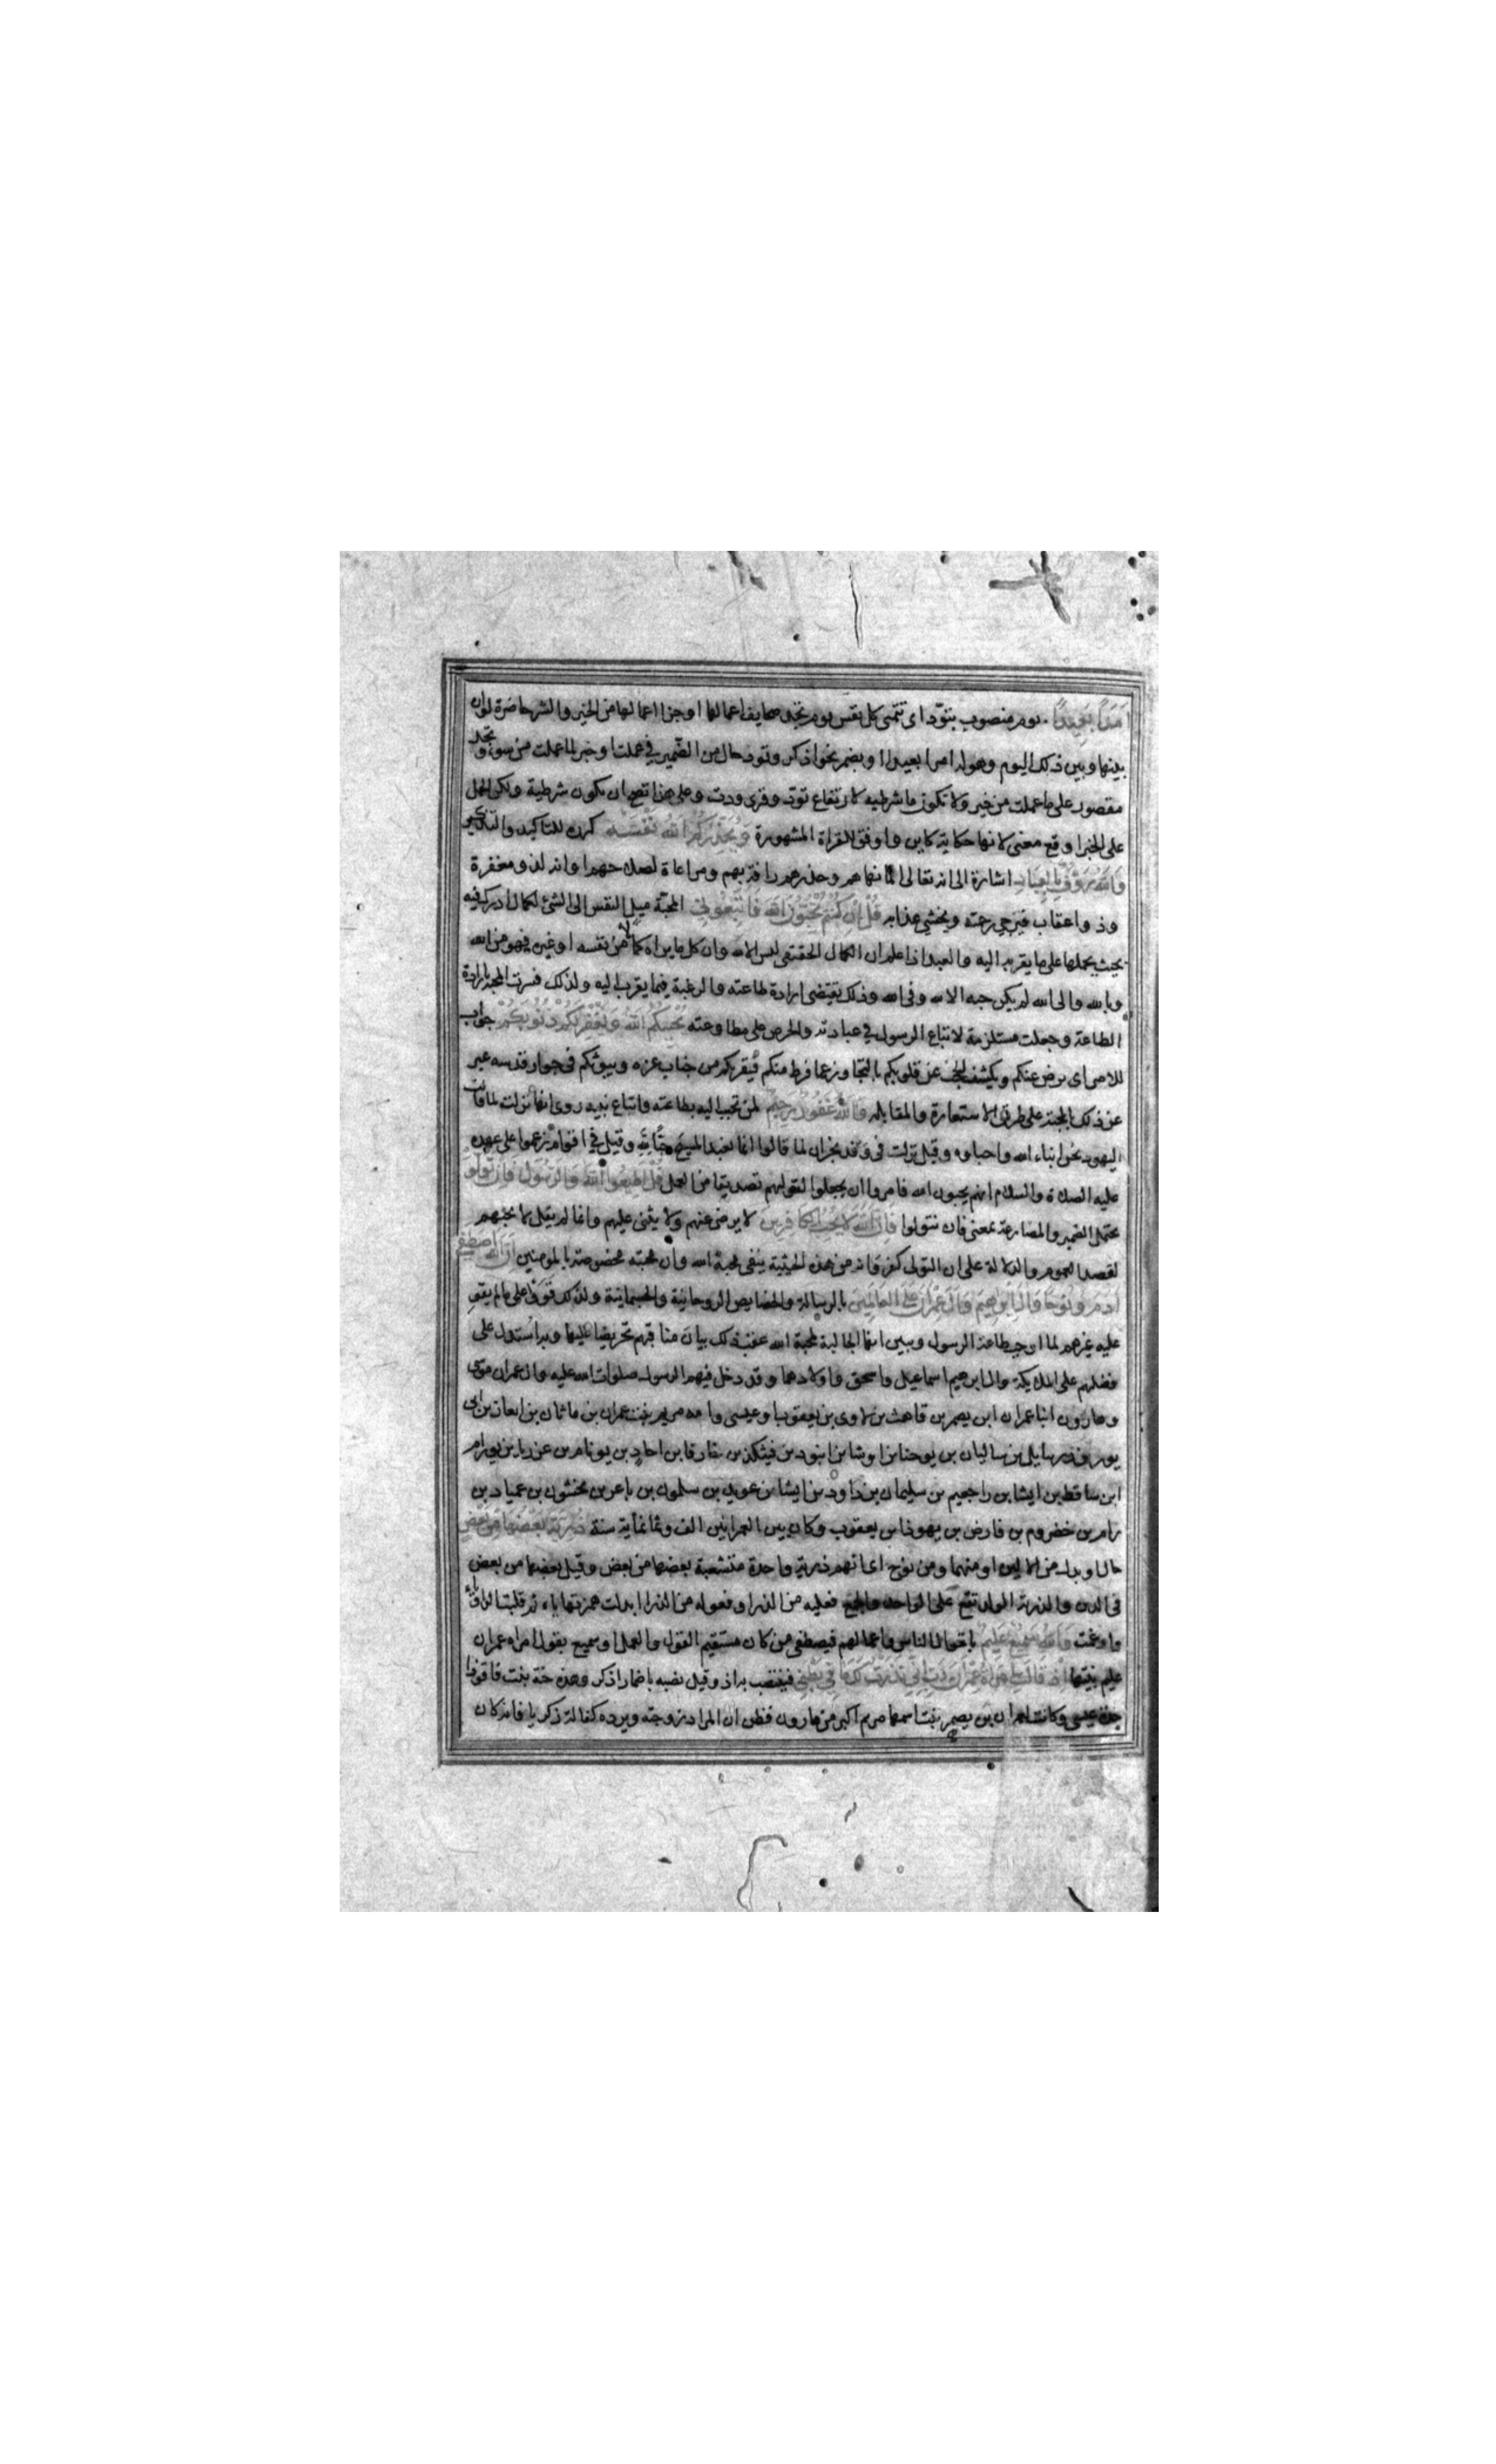 أَمَدًا بَعِيدًا يوم منصوب بتودّ اى تتمنى كل نفس يوم تجد صحايف اعمالها او جزا اعمالها من الخير والشر حاضرة لوان
بينها وبين ذلك اليوم وهوله امدا بعيدا او بضمر نحو اذكر وتود حال من الضمير في عملت او خبر لما عملت من سوء وتجد
مقصور على ما عملت من خير ولا تكون ما شرطيه لارتفاع تودّ وقرى ودت وعلى هذا تصح ان تكون شرطية ولكن الحمل
على الخبر اوقع معنى لانها حكاية كاين واوفق للقراة المشهورة وَيُحَذِّرُكُمُ اللَّهُ نَفْسَهُ كرره للتاكيد والتذكير
وَاللَّهُ رَؤُفٌ بِالْعِبَادِ اشارة الى انه تعالى انما نهاهم وحذرهم رافة بهم ومراعاة لصلاحهم او انه لذو مغفرة
وذو اعقاب فيرجى رحمته ويخشى عذابه قُلْ إِنْ كُنْتُمْ تُحِبُّونَ اللَّهَ فَاتَّبِعُونِي المحبّة ميل النفس الى الشئ لكمال ادرك فيه
بحيث يحملها على ما يقربه اليه والعبد اذا علم ان الكمال الحقيقى ليس الا لله وان كل ما يراه كمالا من نفسه او غيره فهو من الله
وبالله والى الله لم يكن حبه الا لله وفى الله وذلك يقتضى ارادة طاعته والرغبة فيما يقرب اليه ولذلك فسرت المحبة بارادة
الطاعة وجعلت مستلزمة لاتباع الرسول في عبادته والحرص على مطاوعته يُحْبِبْكُمُ اللَّهُ وَيَغْفِرْ لَكُمْ ذُنُوبَكُمْ جواب
للامر اى يرض عنكم ويكشف الحجب عن قلوبكم بالتجاوز عما فرط منكم فيقربكم من جناب عزه ويبوئكم فى جوار قدسه عبر
عن ذلك بالمحبة على طريق الاستعارة والمقابله وَاللَّهُ غَفُورٌ رَحِيمٌ لمن تحبب اليه بطاعته واتباع نبيه روى انها نزلت لما قالت
اليهود نحن ابناء الله واحباوه وقيل نزلت فى وفد نجران لما قالوا انما نعبد المسيح حبّا لله وقيل في اقوام زعموا على عهده
عليه الصلاة والسلام انهم يحبون الله فامروا ان يجعلوا لقولهم تصديقا من العمل قُلْ أَطِيعُوا اللَّهَ وَالرَّسُولَ فَإِنْ تَوَلَّوْا
يحتمل الضمير والمضارعة بمعنى فان تتولوا فَإِنَّ اللَّهَ لَا يُحِبُّ الْكَافِرِينَ لا يرضى عنهم ولا يثنى عليهم وانما لم يقل لا يحبهم
لقصد العموم والدلالة على ان التولى كفر وانه من هذه الحيثية ينفى محبة الله وان محبته مخصوصة بالمومنين إِنَّ اللَّهَ اصْطَفَى
آدَمَ وَنُوحًا وَآلَ إِبْرَاهِيمَ وَآلَ عِمْرَانَ عَلَى الْعَالَمِينَ بالرسالة والخصايص الروحانية والجسمانية ولذلك قووا على ما لم يقو
عليه غيرهم لما اوجب طاعة الرسول وبين انها الجالبة لمحبة الله عقب ذلك ببيان مناقبهم تحريضا عليها وبه استدل على
فضلهم على الملايكة وال ابرهيم اسماعيل واسحق واولادهما وقد دخل فيهم الرسول صلوات الله عليه وال عمران موسى
وهارون ابنا عمران ابن يصهر بن قاهث بن لاوى بن يعقوب او عيسى وامه مريم بنت عمران بن ماثان بن العازر بن ابى
بن يوحنا بن اوشا بن
ابن ايشا بن راجعيم بن سليمان بن داود بن ايشا بن عوبد بن سلمون بن باعر بن نخشون بن عمياد بن
رام بن خضروم بن فارض بن يهوذا بن يعقوب وكان بين العمرانين الف وثمانماية سنة ذُرِّيَّةً بَعْضُهَا مِنْ بَعْضٍ
حال او بدل من الالين او منهما ومن نوح اى انهم ذرية واحدة متشعبة بعضها من بعض وقيل بعضها من بعض
فى الدين والذرية الولد تقع على الواحد والجمع فعلية من الذر او فعوله من الذرا ابدلت همزتها ياء ثم قلبت الواو ياء
وادغمت وَاللَّهُ سَمِيعٌ عَلِيمٌ باقوال الناس واعمالهم فيصطفى من كان مستقيم القول والعمل او سميع بقول امراة عمران
عليم بنيتها إِذْ قَالَتِ امْرَأَةُ عِمْرَانَ رَبِّ إِنِّي نَذَرْتُ لَكَ مَا فِي بَطْنِي فينتصب به اذ وقيل نصبه باضمار اذكر وهذه حنة بنت فاقوذا
جدة عيسى وكانت لعمران بن يصهر بنت اسمها مريم اكبر من هارون فظن ان المراد زوجته ويرده كفالة زكريا فانه كان